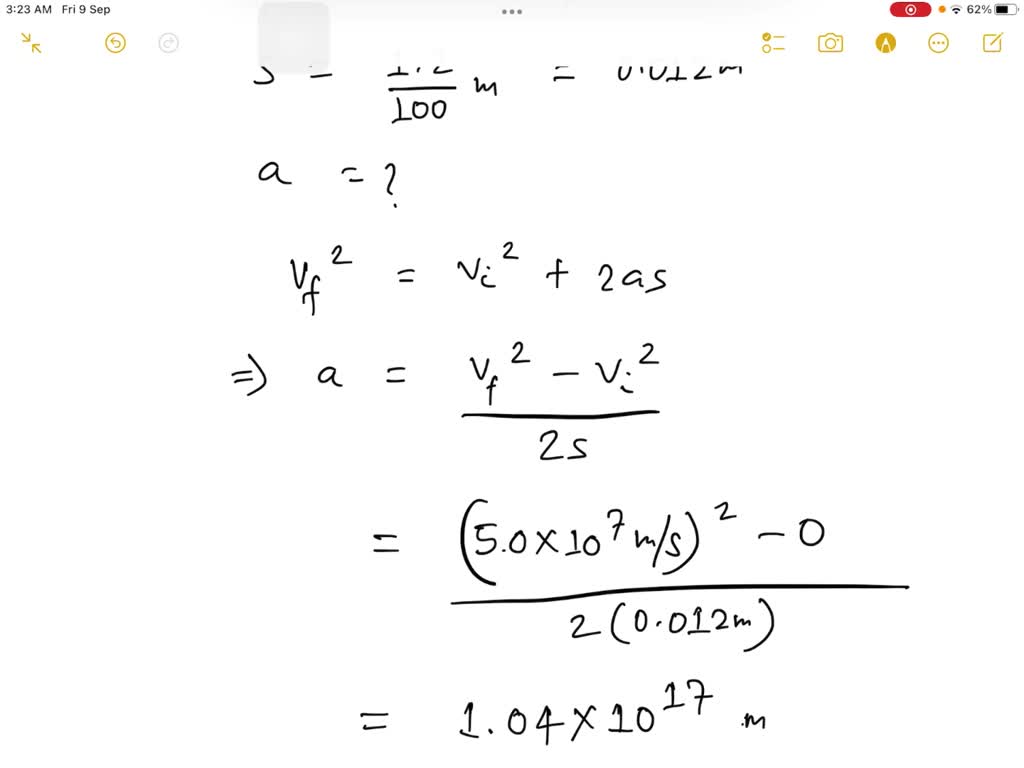 3:23 AM Fri 9 Sep 62%
s = 1.2/100 m = 0.012m
a = ?
v_f² = v_i² + 2as
⇒ a = (v_f² − v_i²)/2s
= ((5.0×10⁷ m/s)² − 0)/2(0.012m)
= 1.04×10¹⁷ m